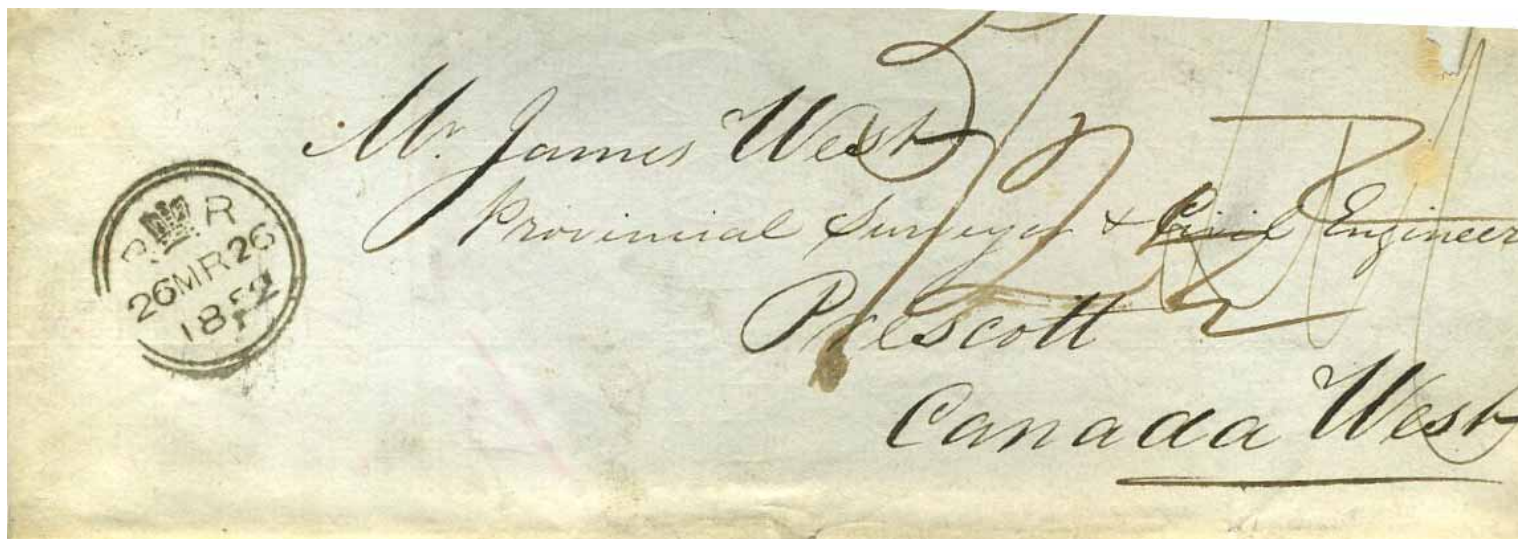 Mr. James West
Provincial Surveyor & Civil Engineer
Prescott
Canada West
P R
26MR26
1852